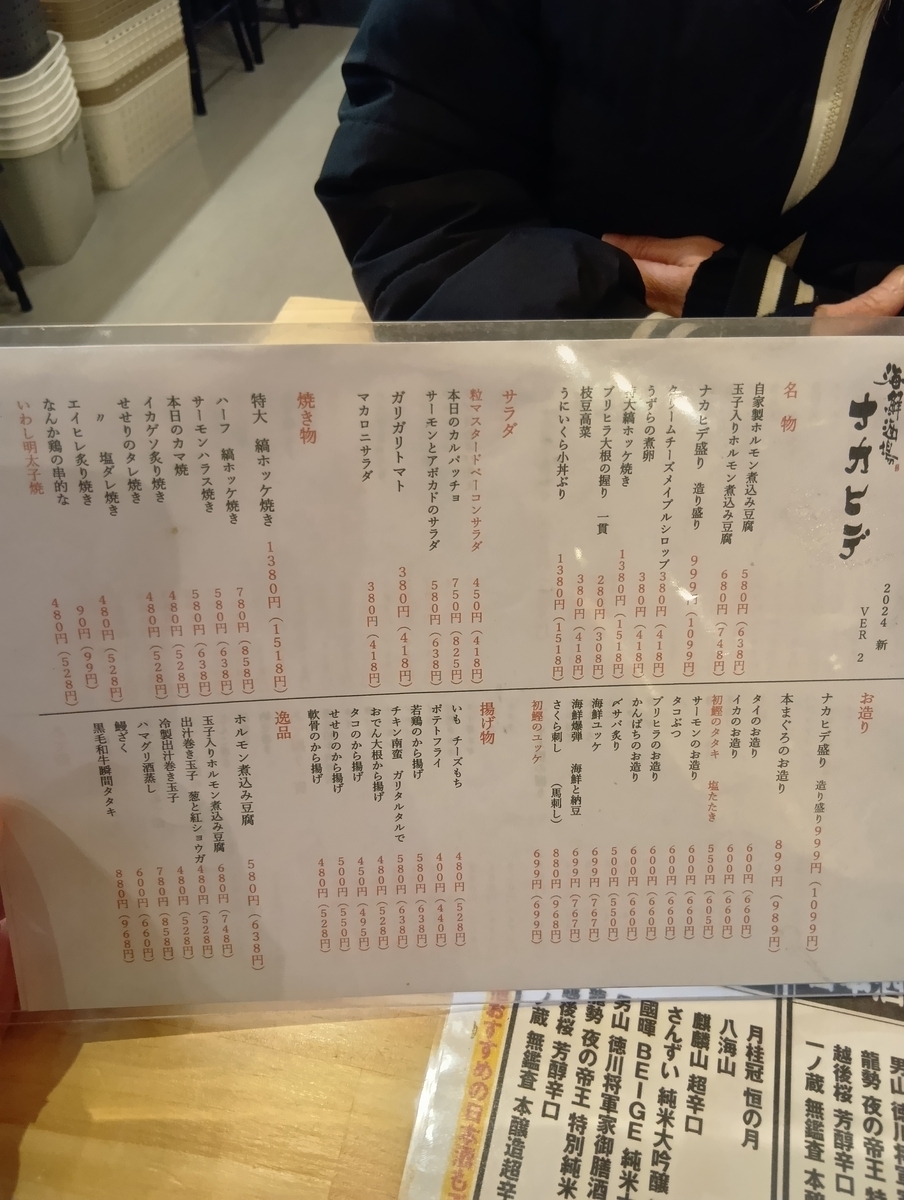 海鮮酒場
ナカヒデ
2024 新
VER 2
名物
自家製ホルモン煮込み豆腐 580円(638円)
玉子入りホルモン煮込み豆腐 680円(748円)
ナカヒデ盛り 造り盛り 999円(1099円)
クリームチーズメイプルシロップ 380円(418円)
うずらの煮卵 380円(418円)
特大縞ホッケ焼き 1380円(1518円)
ブリヒラ大根の握り 一貫 280円(308円)
枝豆高菜 380円(418円)
うにいくら小丼ぶり 1380円(1518円)
サラダ
粒マスタードベーコンサラダ 450円(418円)
本日のカルパッチョ 750円(825円)
サーモンとアボカドのサラダ 580円(638円)
ガリガリトマト 380円(418円)
マカロニサラダ 380円(418円)
焼き物
特大 縞ホッケ焼き 1380円(1518円)
ハーフ 縞ホッケ焼き 780円(858円)
サーモンハラス焼き 580円(638円)
本日のカマ焼 580円(638円)
イカゲソ炙り焼き 480円(528円)
せせりのタレ焼き 480円(528円)
〃 塩ダレ焼き 480円(528円)
エイヒレ炙り焼き
なんか鶏の串的な 90円(99円)
いわし明太子焼 480円(528円)
お造り
ナカヒデ盛り 造り盛り 999円(1099円)
本まぐろのお造り 899円(989円)
タイのお造り 600円(660円)
イカのお造り 600円(660円)
初鰹のタタキ 塩たたき 550円(605円)
サーモンのお造り 600円(660円)
タコぶつ 600円(660円)
ブリヒラのお造り 600円(660円)
かんぱちのお造り 600円(660円)
〆サバ炙り 500円(550円)
海鮮ユッケ 699円(767円)
海鮮爆弾 海鮮と納豆 699円(767円)
さくら刺し (馬刺し) 880円(968円)
初鰹のユッケ 699円(699円)
揚げ物
いも チーズもち 480円(528円)
ポテトフライ 400円(440円)
若鶏のから揚げ 580円(638円)
チキン南蛮 ガリタルタルで 580円(638円)
おでん大根から揚げ 480円(528円)
タコのから揚げ 450円(495円)
せせりのから揚げ 500円(550円)
軟骨のから揚げ 480円(528円)
逸品
ホルモン煮込み豆腐 580円(638円)
玉子入りホルモン煮込み豆腐 680円(748円)
出汁巻き玉子 葱と紅ショウガ 480円(528円)
冷製出汁巻き玉子 480円(528円)
ハマグリ酒蒸し 780円(858円)
鰻ざく 600円(660円)
黒毛和牛瞬間タタキ 880円(968円)
男山 徳川将
龍勢 夜の帝王
越後桜 芳醇辛口
一ノ蔵 無鑑査 本
月桂冠 恒の月
八海山
麒麟山 超辛口
さんずい 純米大吟醸
國暉 BEIGE 純米
男山 徳川将軍家御膳酒
龍勢 夜の帝王 特別純米
越後桜 芳醇辛口
一ノ蔵 無鑑査 本醸造超辛
おすすめの日本酒も